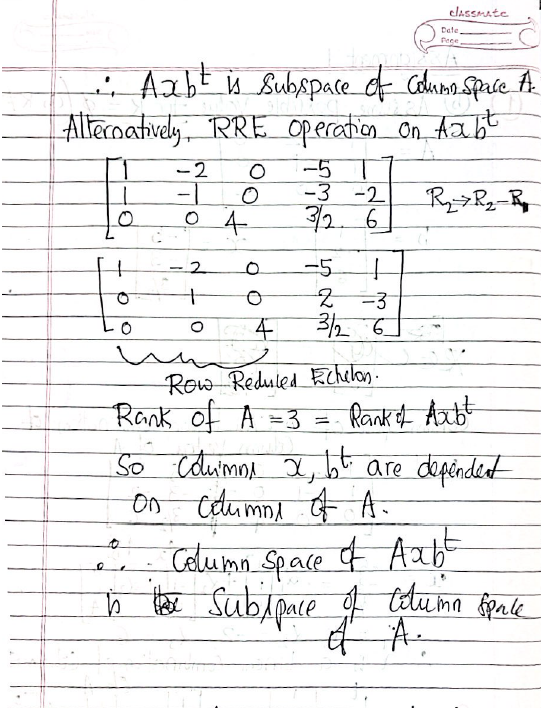 classmate
Date
Page
∴ Axbᵗ is Subspace of Column Space A.
Alternatively, RRE operation on Axbᵗ
[1 -2 0 -5 1
1 -1 0 -3 -2
0 0 4 3/2 6] R₂→R₂-R₁
[1 -2 0 -5 1
0 1 0 2 -3
0 0 4 3/2 6]
Row Reduced Echelon.
Rank of A = 3 = Rank of Axbᵗ
So columns x, bᵗ are dependent
on columns of A.
∴ Column space of Axbᵗ
is Subspace of Column Space
of A.